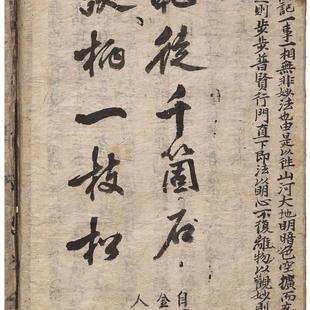 記一事一相無非妙法也由是以往山河大地明暗色空擴而充
則步步普賢行門直下即法以明心不復離物以觀妙則
從千箇石
柄一枝松
自
金
人